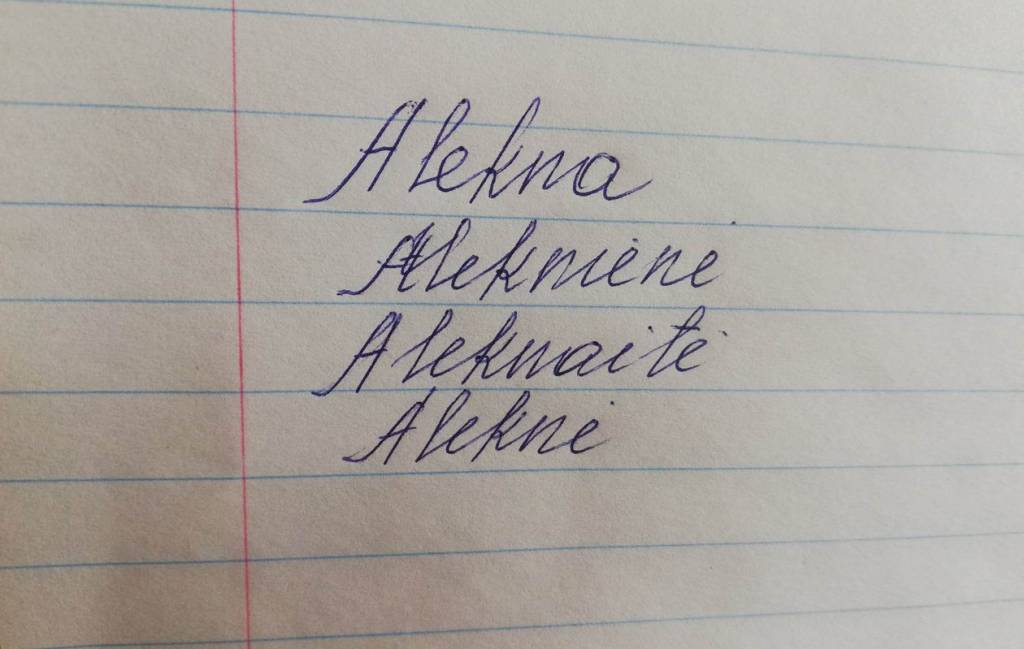 Alekna
Aleknienė
Aleknaitė
Aleknė